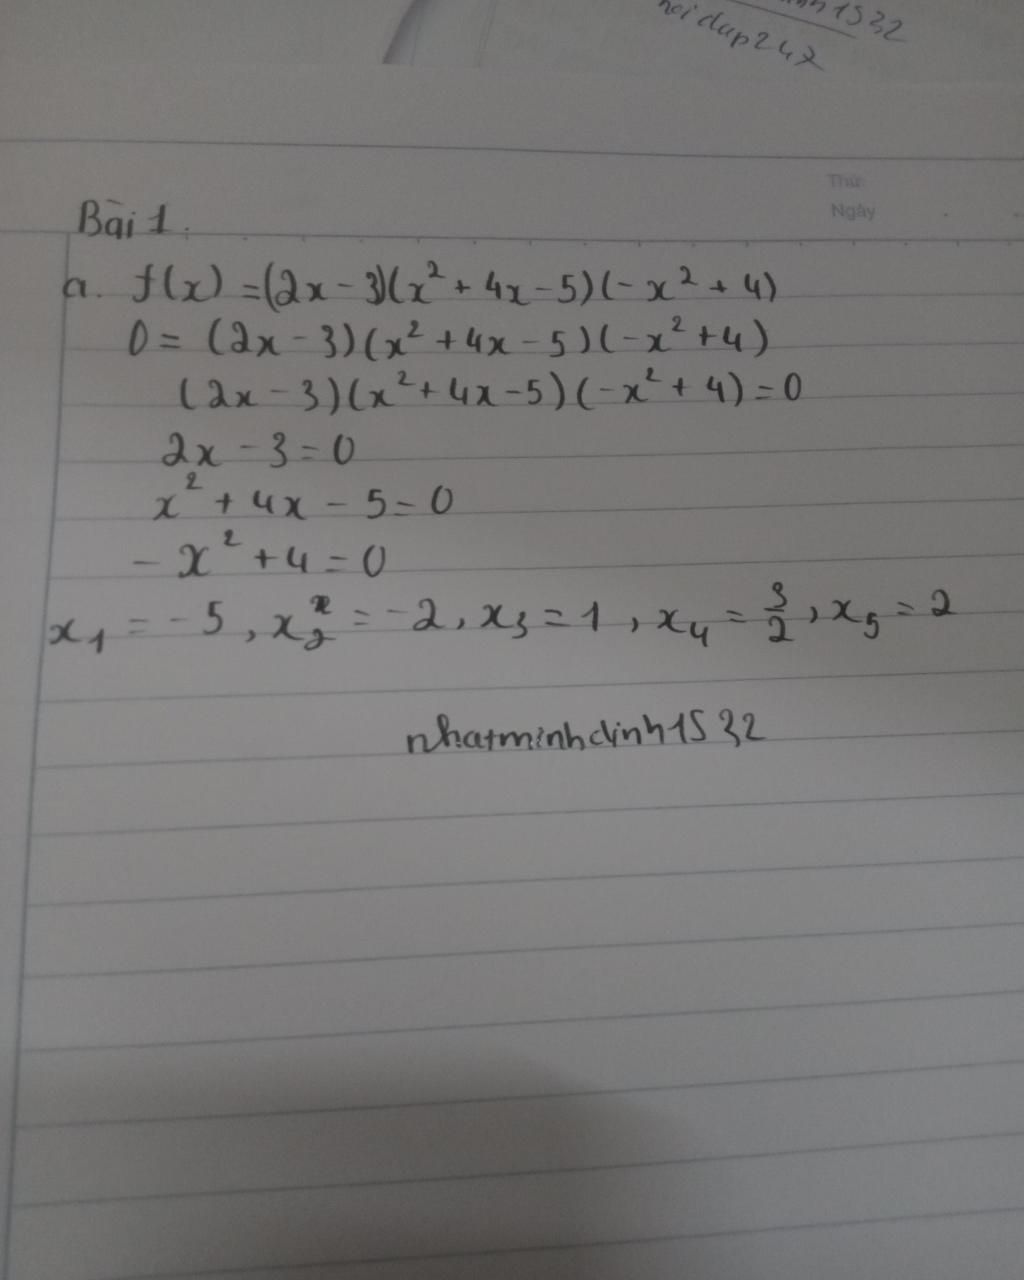 nh1532
hoidap247
Thứ
Ngày
Bài 1.
a. f(x) = (2x - 3)(x² + 4x - 5)(-x² + 4)
0 = (2x - 3)(x² + 4x - 5)(-x² + 4)
(2x - 3)(x² + 4x - 5)(-x² + 4) = 0
2x - 3 = 0
x² + 4x - 5 = 0
- x² + 4 = 0
x₁ = -5, x₂ = -2, x₃ = 1, x₄ = 3/2, x₅ = 2
nhatminhdinh1532